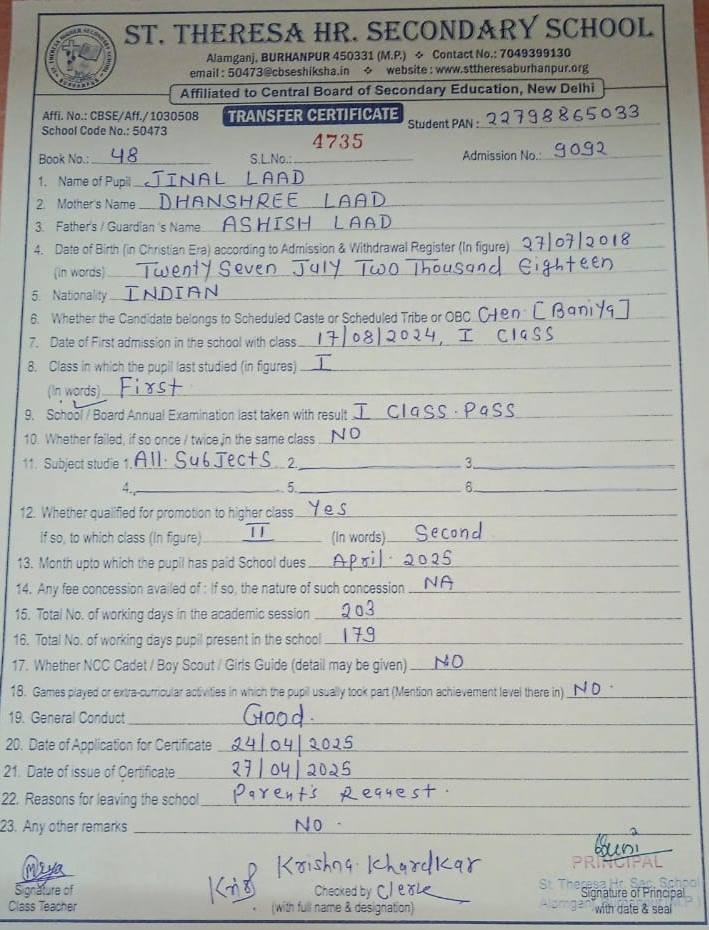 ST. THERESA HR. SECONDARY SCHOOL
Alamganj, BURHANPUR 450331 (M.P.) ❖ Contact No.: 7049399130
email : 50473@cbseshiksha.in ❖ website : www.sttheresaburhanpur.org
Affiliated to Central Board of Secondary Education, New Delhi
Affi. No.: CBSE/Aff./1030508 TRANSFER CERTIFICATE Student PAN : 22798865033
School Code No.: 50473
4735
Book No.: 48 S.L.No.: Admission No.: 9092
1. Name of Pupil JINAL LAAD
2. Mother's Name DHANSHREE LAAD
3. Father's / Guardian 's Name ASHISH LAAD
4. Date of Birth (in Christian Era) according to Admission & Withdrawal Register (In figure) 27/07/2018
(in words) Twenty Seven July Two Thousand Eighteen
5. Nationality INDIAN
6. Whether the Candidate belongs to Scheduled Caste or Scheduled Tribe or OBC Gen. [Baniya]
7. Date of First admission in the school with class 17/08/2024, I Class
8. Class in which the pupil last studied (in figures) I
(In words) First
9. School / Board Annual Examination last taken with result I Class. Pass
10. Whether failed, if so once / twice in the same class NO
11. Subject studie 1. All. Subjects 2. 3.
4. 5. 6.
12. Whether qualified for promotion to higher class Yes
If so, to which class (In figure) II (In words) Second
13. Month upto which the pupil has paid School dues April. 2025
14. Any fee concession availed of : If so, the nature of such concession NA
15. Total No. of working days in the academic session 203
16. Total No. of working days pupil present in the school 179
17. Whether NCC Cadet / Boy Scout / Girls Guide (detail may be given) NO
18. Games played or extra-curricular activities in which the pupil usually took part (Mention achievement level there in) NO.
19. General Conduct Good.
20. Date of Application for Certificate 24/04/2025
21. Date of issue of Certificate 27/04/2025
22. Reasons for leaving the school Parent's Request.
23. Any other remarks NO.
Krishna Khardkar
PRINCIPAL
Signature of Checked by Clerk St. Theresa Hr. Sec. School Signature of Principal
Class Teacher (with full name & designation) with date & seal